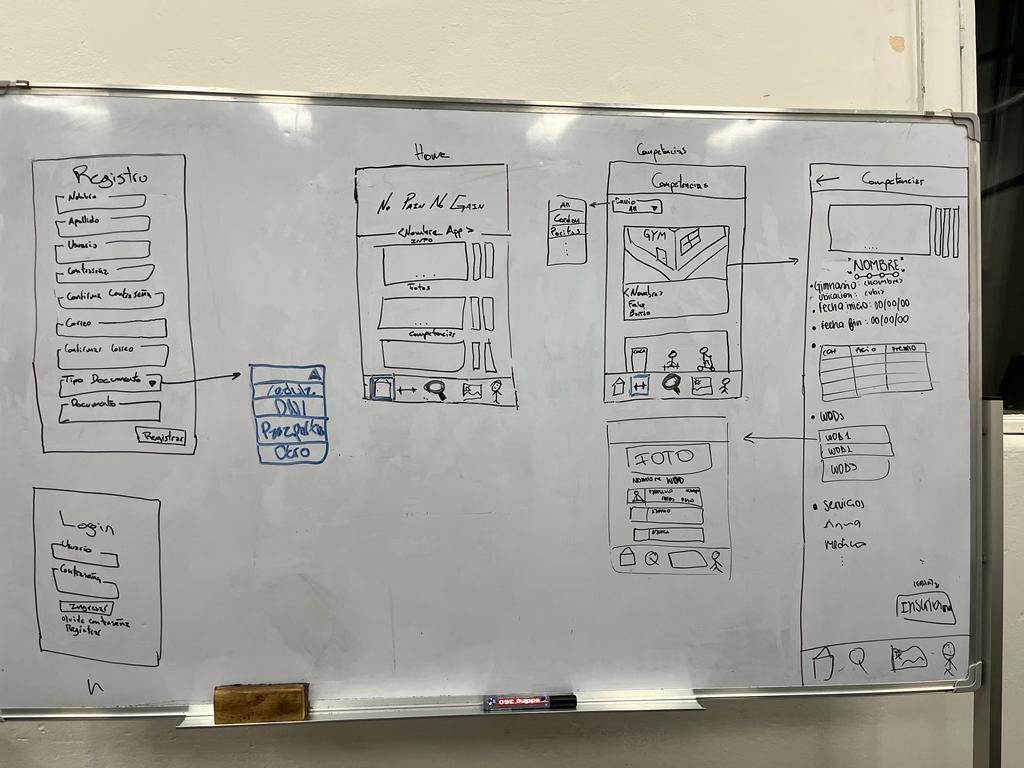 Registro
Nombre
Apellido
Usuario
Contraseña
Confirma Contraseña
Correo
Confirmar Correo
Tipo Documento
Documento
Registrar
DNI
Pasaporte
Otro
Login
Usuario
Contraseña
Ingresar
olvide contraseña
Registrar
Home
No Pain No Gain
<Nombre App>
INFO
....
Fotos
....
Competencias
Competencias
Competencias
All
All
Cordon
Pocitos
GYM
<Nombre>
Barrio
FOTO
NOMBRE WOD
Competencias
....
NOMBRE
Gimnasio: <Nombre>
Ubicacion: <ubi>
fecha inicio: 00/00/00
fecha fin: 00/00/00
PREMIO
WODs
WOD1
WOD2
WOD3
Servicios
Agua
Medico